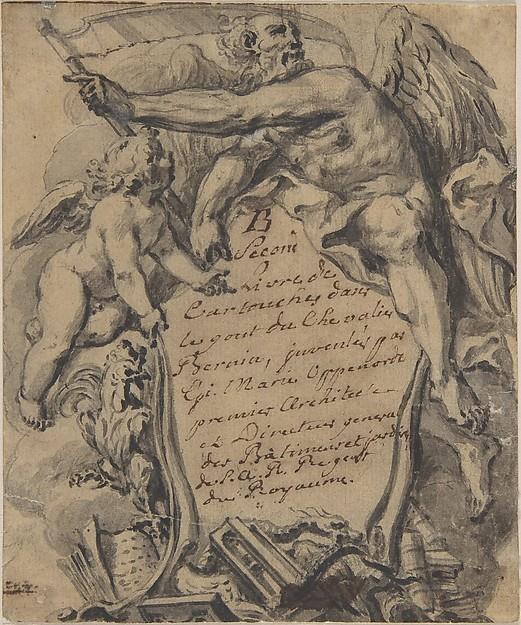 B
Second
Livre de
Cartouches dans
le gout du Chevalier
Bernin, inventés par
Gil. Marie Oppenordt
premier Architecte
et Directeur general
des Bâtiments et jardins
de S. A. R. Regent
du Royaume.